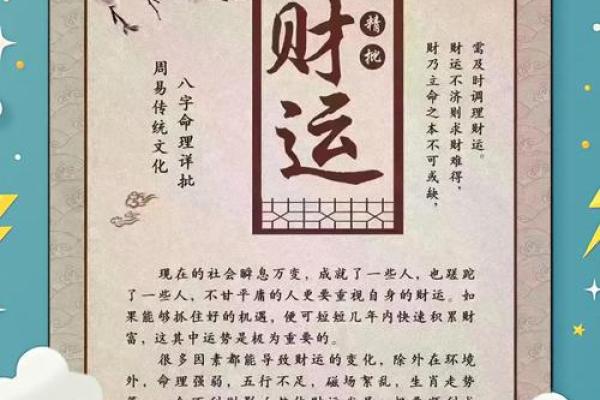 财运
精批
周易传统文化
八字命理详批
财乃立命之本不可或缺，
财运不济则求财难得，
需及时调理财运。
现在的社会瞬息万变，成就了一些人，也蹉跎
了一些人，不甘平庸的人更要重视自身的财运。如
果能够抓住好的机遇，便可短短几年内快速积累财
富，这其中运势是极为重要的。
很多因素都能导致财运的变化，除外在环境
外，命理强弱，五行不足，磁场絮乱，生肖走势